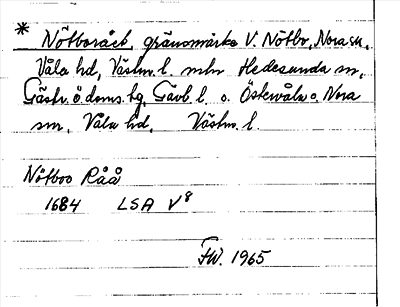 * Nötboråck, gränsmärke V. Nötbo, Nora sn,
Våla hd, Västm. l. mln Hedesunda sn,
Gästr. ö doms. tg, Gävl. l. o. Östervåla o. Nora
sn, Våla hd, Västm. l.
Nötboo Råå
1684 LSA V8
FW. 1965